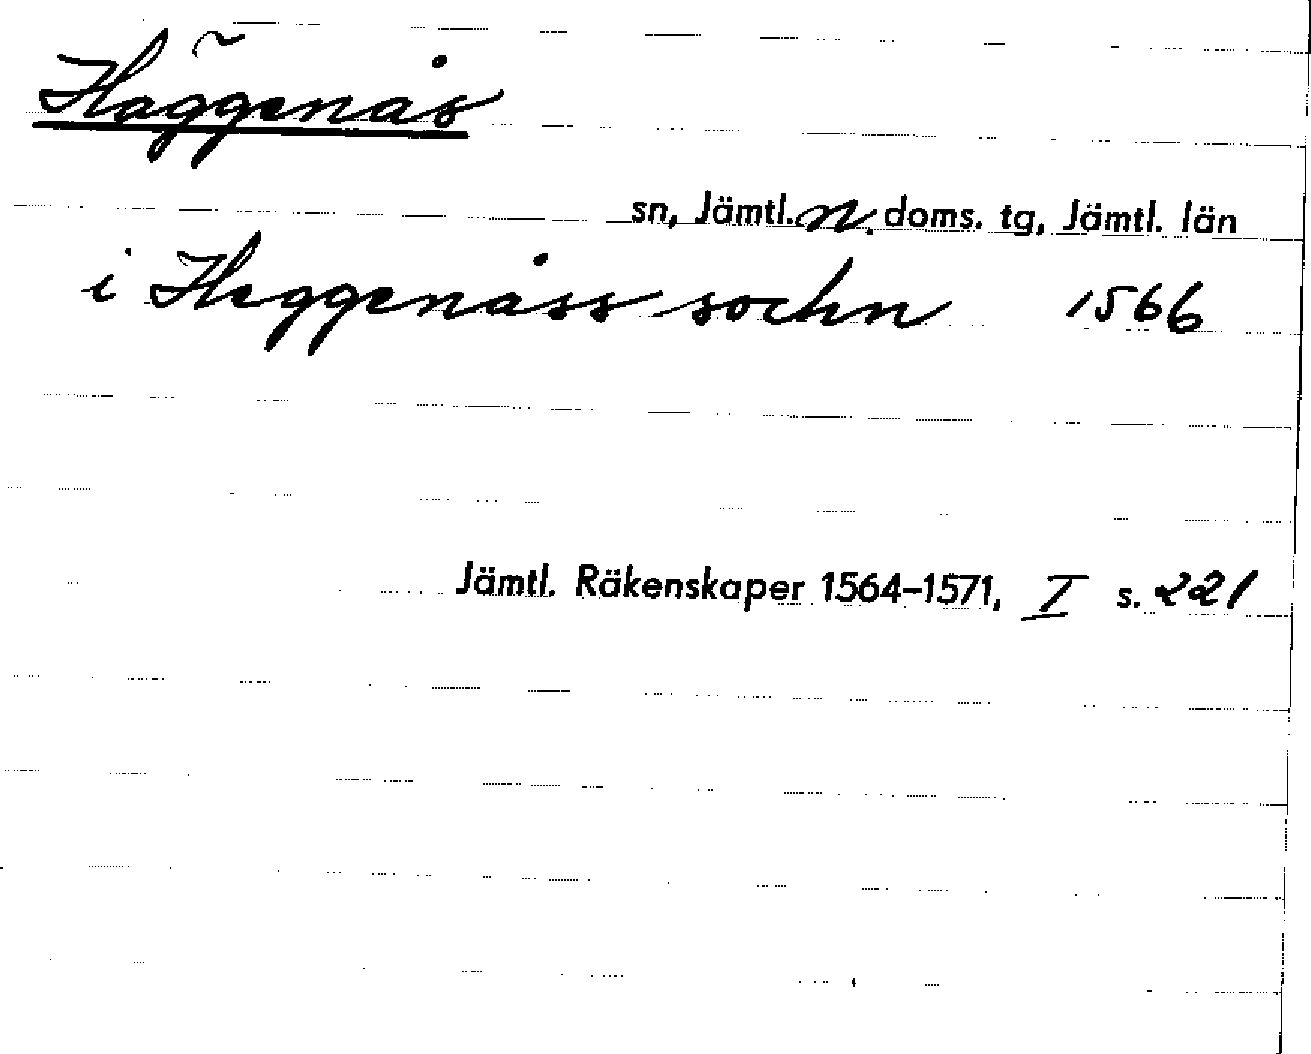 Häggenås
sn, Jämtl. n. doms. tg, Jämtl. län
i Heggenåss sochn 1566
Jämtl. Räkenskaper 1564-1571, I s. 221